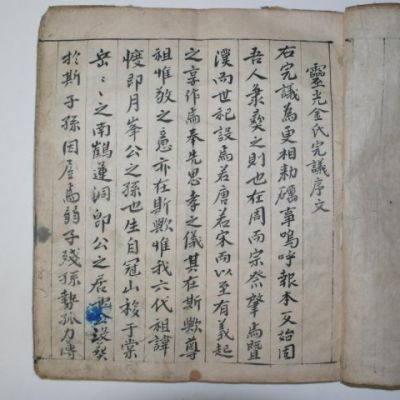 靈光金氏完議序文
右完議爲更相勅礪事嗚呼報本反始固
吾人秉彛之則也在周而宗祭肇焉曁
漢而世祀設焉若唐若宋而以至有義起
之享作焉奉先思孝之儀其在斯歟尊
祖惟敬之意亦在斯歟惟我六代祖諱
㦿即月峯公之孫也生自冠山移于棠
岳棠岳之南鶴蓮洞卽公之居
於斯子孫因居焉弱子殘孫勢孤力薄